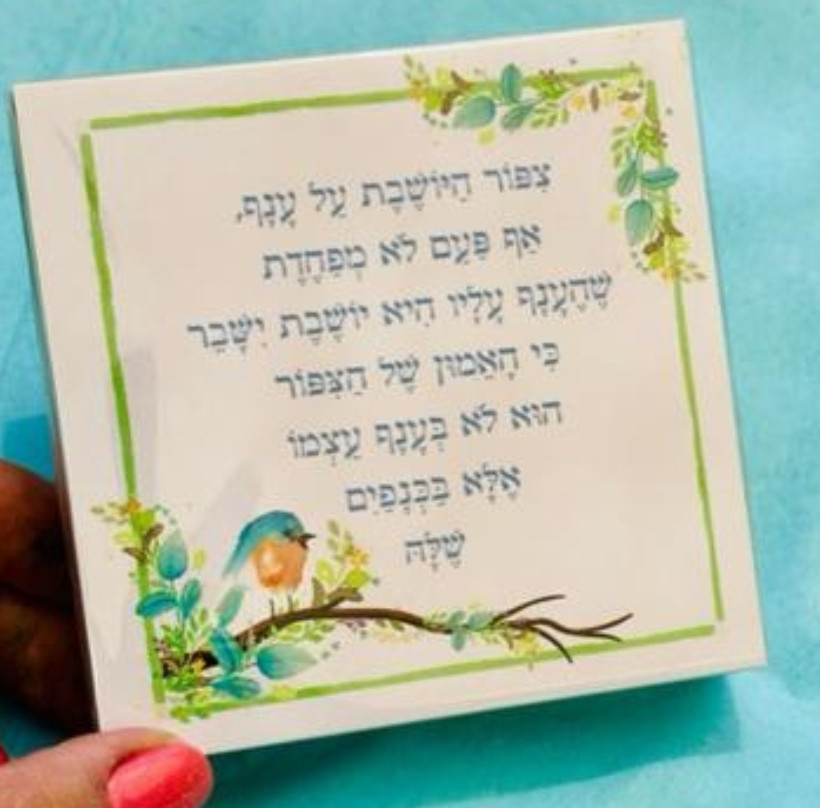 צִפּוֹר הַיּוֹשֶׁבֶת עַל עָנָף,
אַף פַּעַם לֹא מְפַחֶדֶת
שֶׁהֶעָנָף עָלָיו הִיא יוֹשֶׁבֶת יִשָּׁבֵר
כִּי הָאֵמוּן שֶׁל הַצִּפּוֹר
הוּא לֹא בְּעָנָף עַצְמוֹ
אֶלָּא בַּכְּנָפַיִם
שֶׁלָּהּ